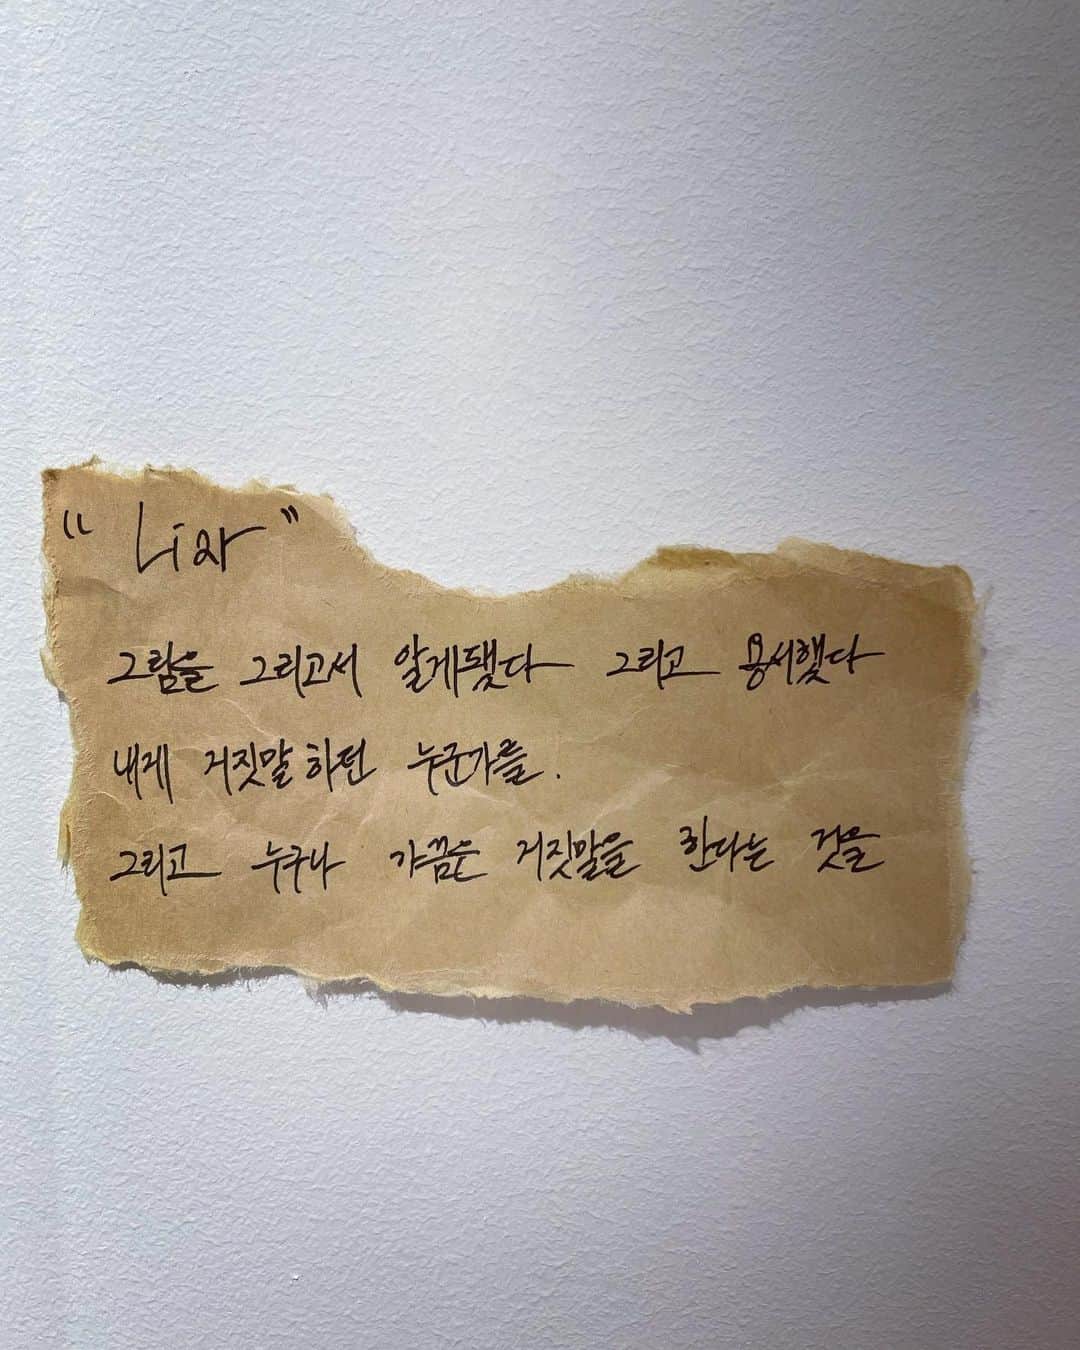 "Liar"
그림을 그리고서 알게됐다 그리고 용서했다
내게 거짓말하던 누군가를.
그리고 누구나 가끔은 거짓말을 한다는 것을